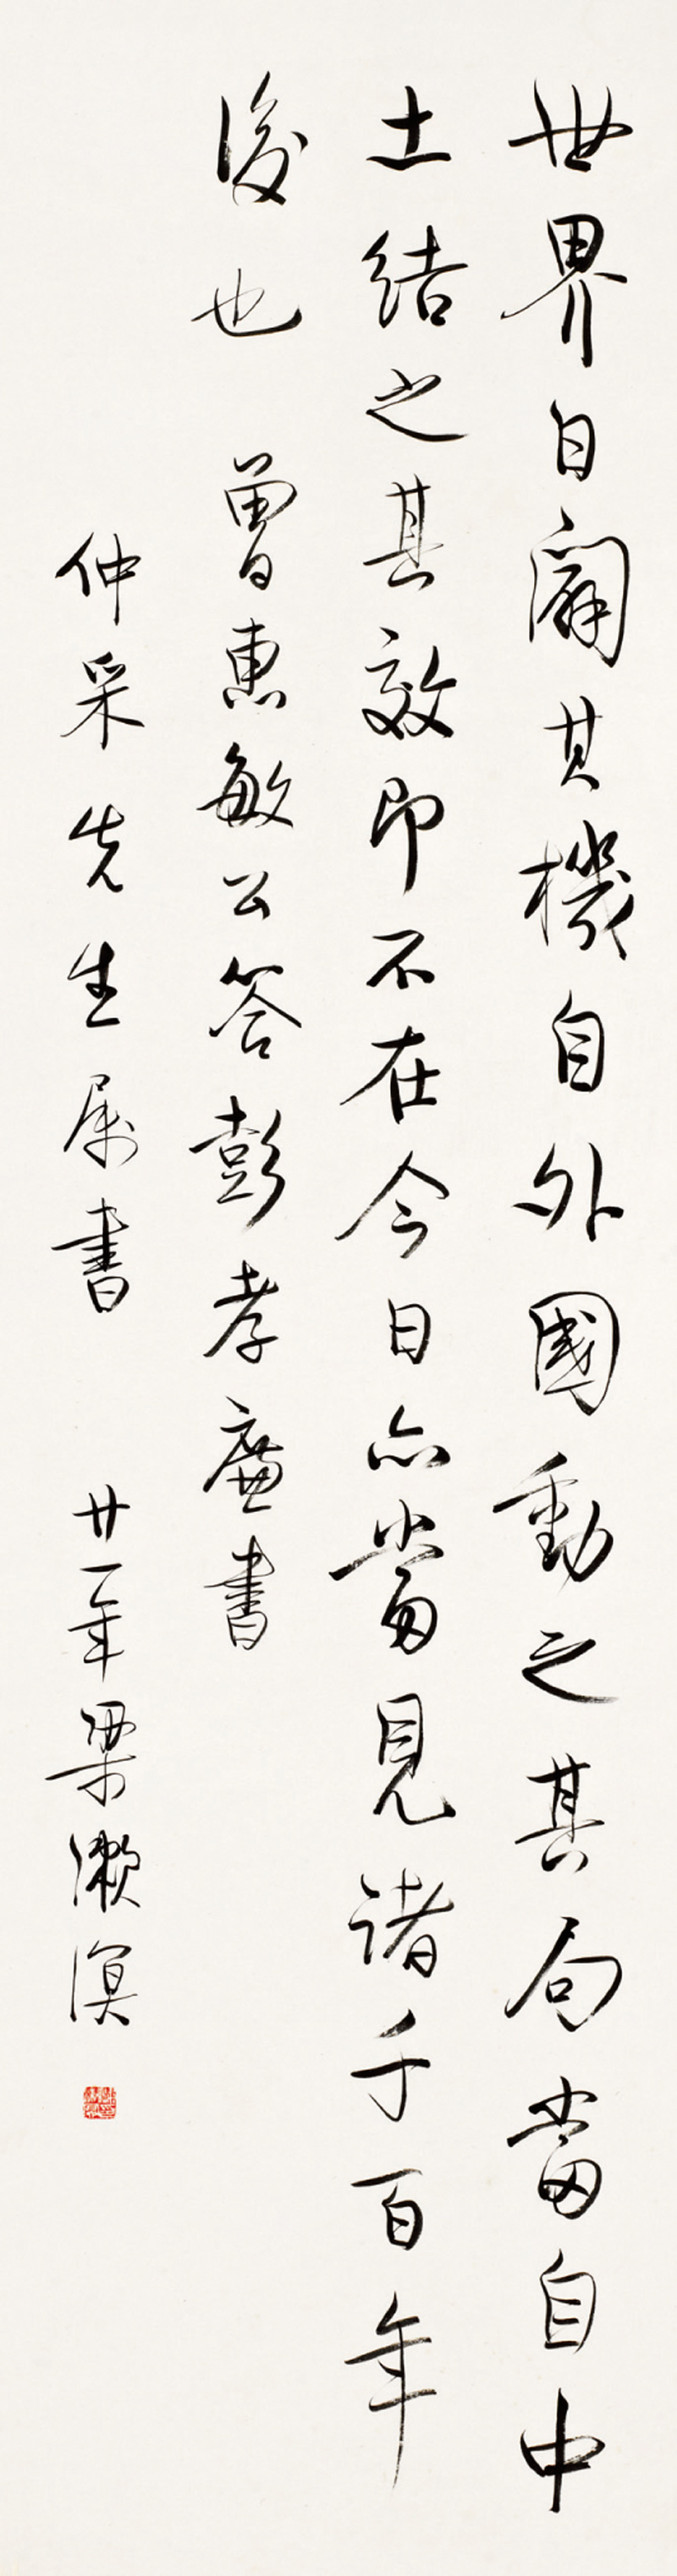 世界日闢其機自外國動之其局當自中
土結之其效即不在今日亦當見諸千百年
後也 曾惠敏公答彭孝廉書
仲采先生属書 廿一年梁漱溟